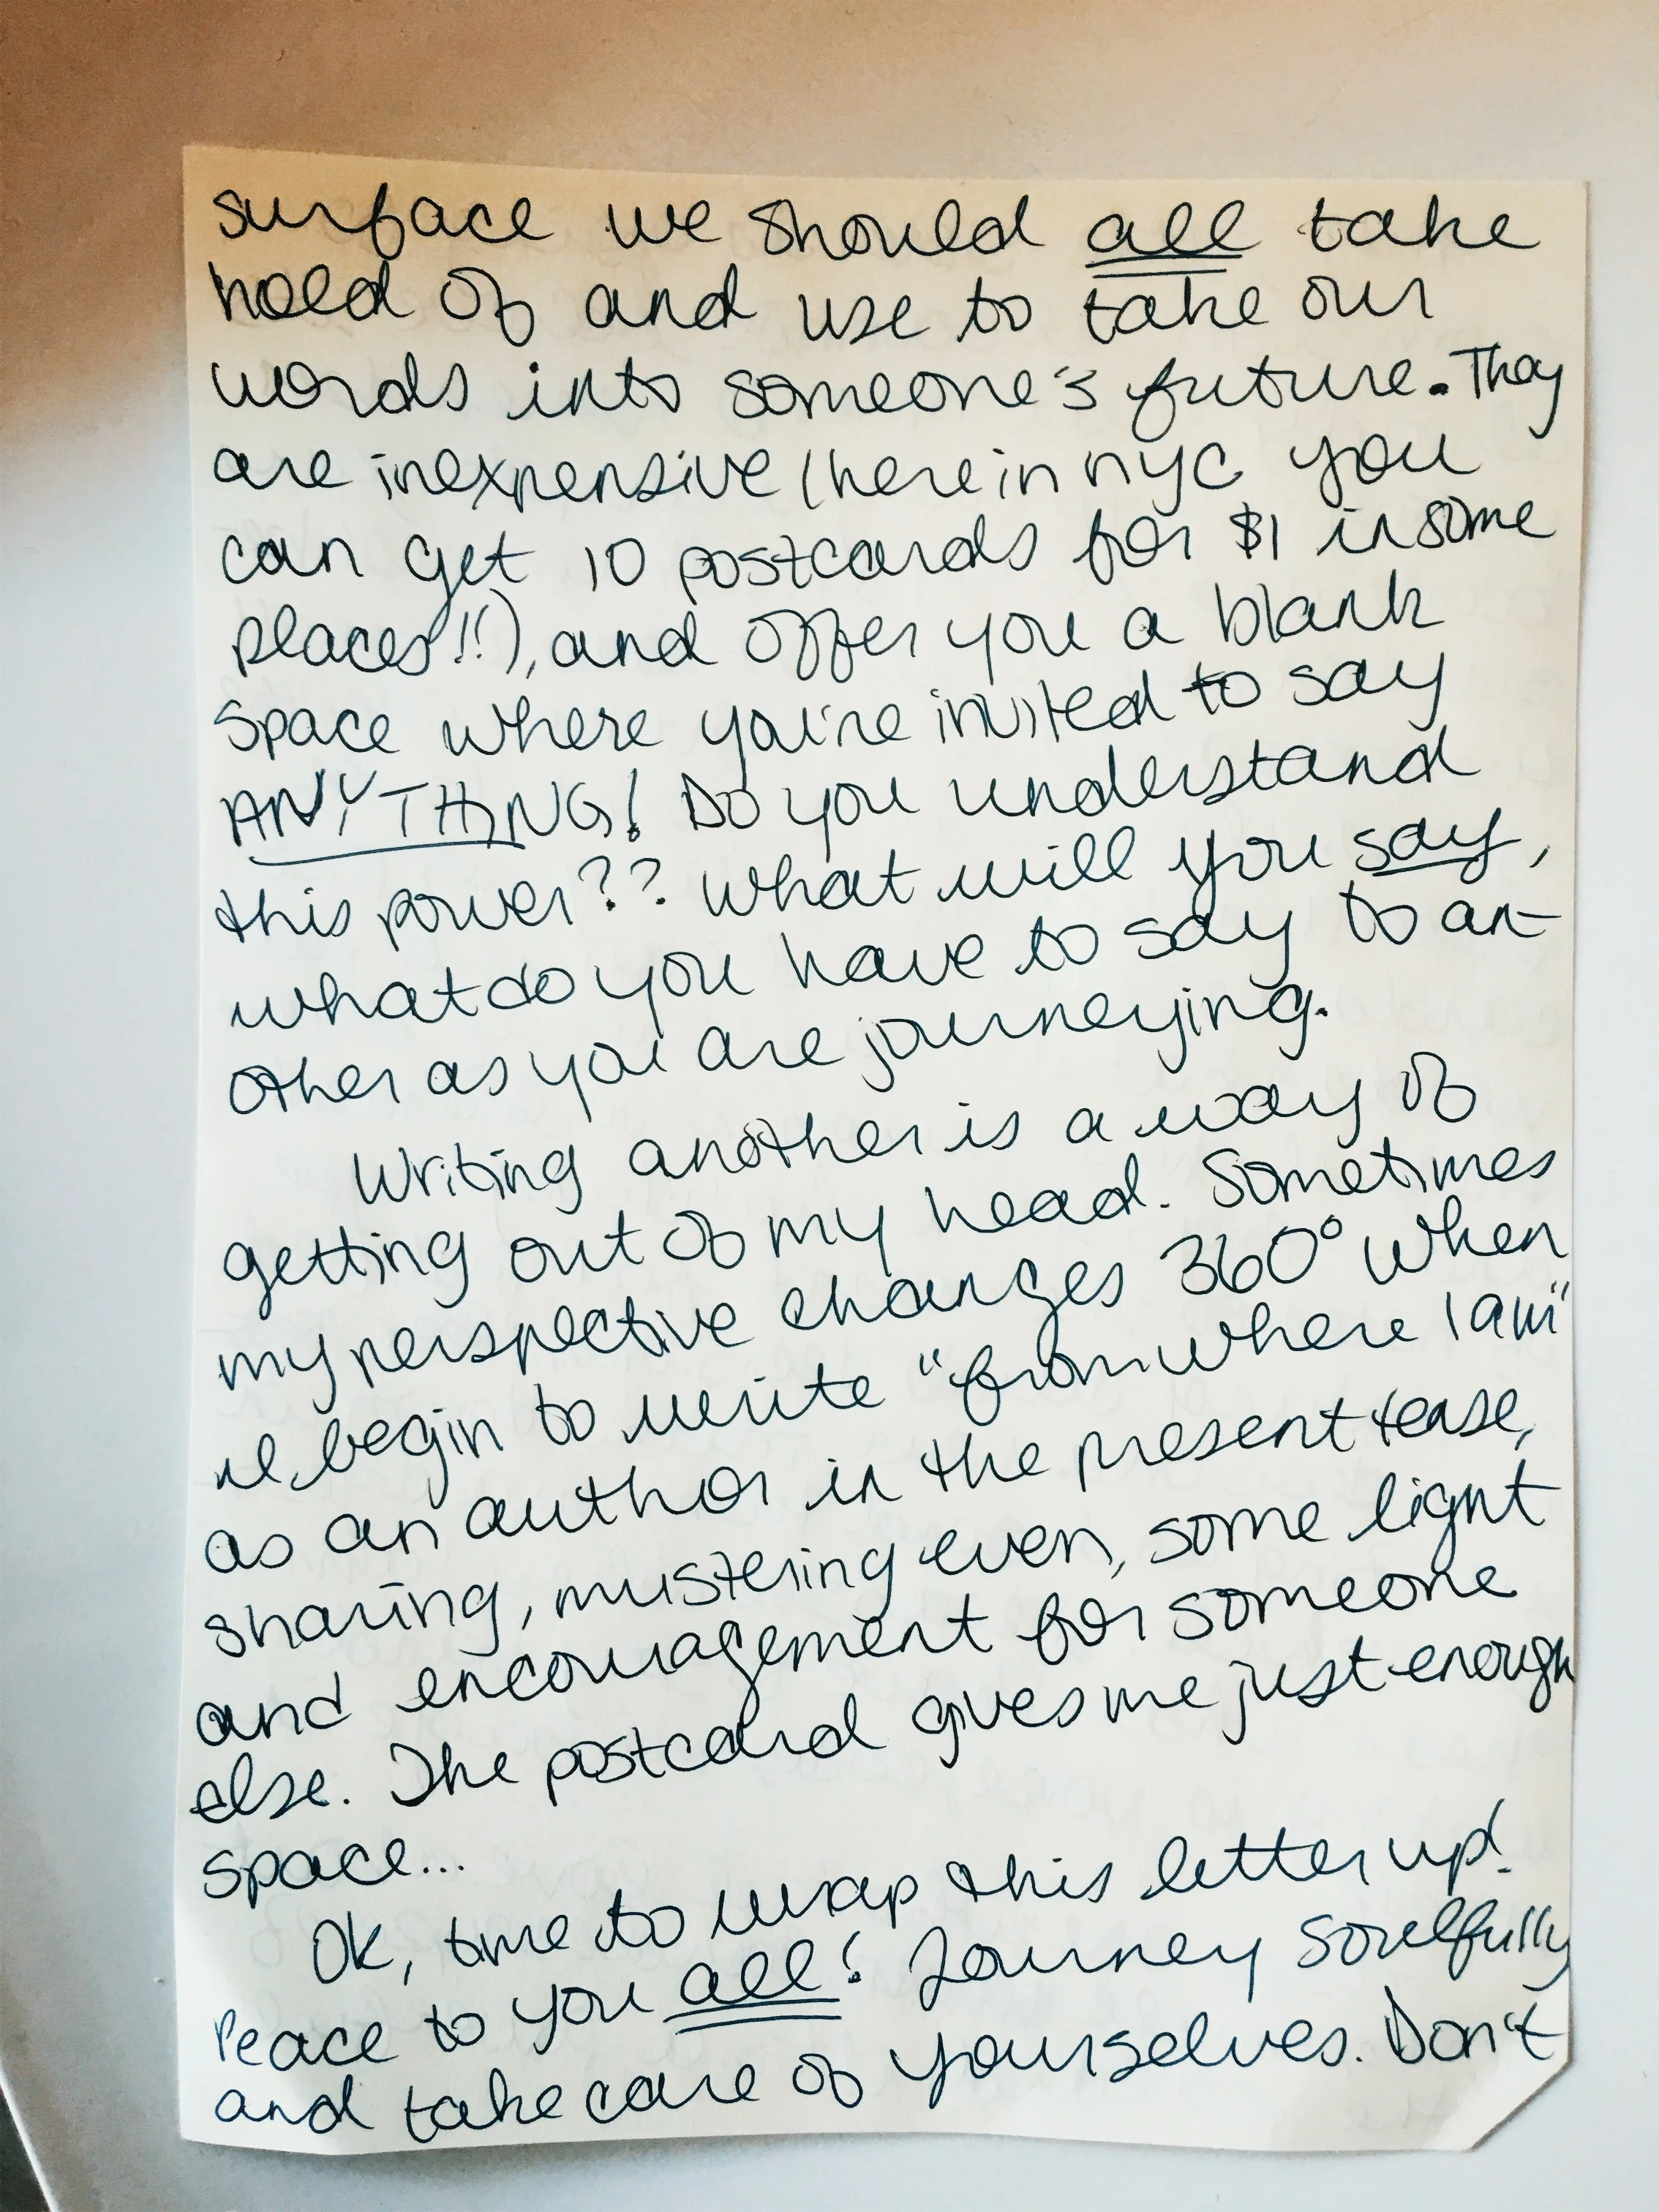 surface we should all take
hold of and use to take our
words into someone's future. They
are inexpensive (here in nyc you
can get 10 postcards for $1 in some
places!!), and offer you a blank
space where you're invited to say
ANYTHING! Do you understand
this power?? What will you say,
what do you have to say to an-
other as you are journeying.
Writing another is a way of
getting out of my head. Sometimes
my perspective changes 360° when
I begin to write "from where I am"
as an author in the present tense,
sharing, mustering even, some light
and encouragement for someone
else. The postcard gives me just enough
space...
Ok, time to wrap this letter up!
Peace to you all! Journey soulfully
and take care of yourselves. Don't